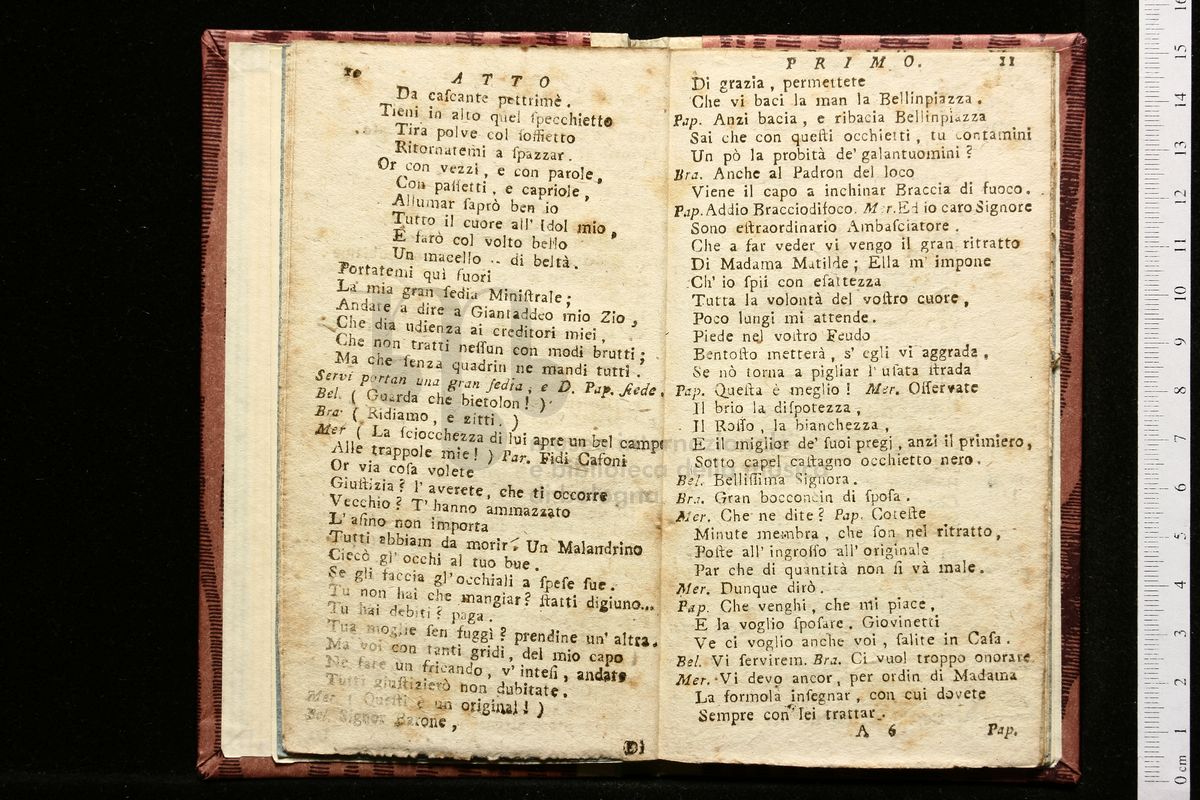 10 ATTO
Da caſcante pettrimè.
Tieni in alto quel ſpecchietto
Tira polve col ſoffietto
Ritornatemi a ſpazzar.
Or con vezzi, e con parole,
Con paſſetti, e capriole,
Allumar ſaprò ben io
Tutto il cuore all' Idol mio,
E farò col volto bello
Un macello .. di beltà.
Portatemi quì fuori
La mia gran ſedia Miniſtrale;
Andate a dire a Giantaddeo mio Zio,
Che dia udienza ai creditori miei,
Che non tratti neſſun con modi brutti;
Ma che ſenza quadrin ne mandi tutti.
Servi portan una gran ſedia, e D. Pap. ſiede.
Bel. ( Guarda che bietolon! )
Bra. ( Ridiamo, e zitti. )
Mer ( La ſciocchezza di lui apre un bel campo
Alle trappole mie! ) Par. Fidi Caſoni
Or via coſa volete
Giuſtizia? l'averete, che ti occorre
Vecchio? T'hanno ammazzato
L'aſino non importa
Tutti abbiam da morir. Un Malandrino
Ciecò gl'occhi al tuo bue.
Se gli faccia gl'occhiali a ſpeſe ſue.
Tu non hai che mangiar? ſtatti digiuno...
Tu hai debiti? paga.
Tua moglie ſen fuggì? prendine un'altra.
Ma voi con tanti gridi, del mio capo
Ne fate un fricando, v'inteſi, andate
Tutti giuſtizierò non dubitate.
Mer. ( Queſti è un original! )
Bel. Signor Barone,
Di
PRIMO. 11
Di grazia, permettete
Che vi baci la man la Bellinpiazza.
Pap. Anzi bacia, e ribacia Bellinpiazza
Sai che con queſti occhietti, tu contamini
Un pò la probità de' galantuomini?
Bra. Anche al Padron del loco
Viene il capo a inchinar Braccia di fuoco.
Pap. Addio Bracciodifoco. Mer. Ed io caro Signore
Sono eſtraordinario Ambaſciatore.
Che a far veder vi vengo il gran ritratto
Di Madama Matilde; Ella m'impone
Ch'io ſpii con eſattezza
Tutta la volontà del voſtro cuore,
Poco lungi mi attende.
Piede nel voſtro Feudo
Bentoſto metterà, s'egli vi aggrada,
Se nò torna a pigliar l'uſata ſtrada
Pap. Queſta è meglio! Mer. Oſſervate
Il brio la diſpotezza,
Il Roſſo, la bianchezza,
E il miglior de' ſuoi pregi, anzi il primiero,
Sotto capel caſtagno occhietto nero.
Bel. Belliſſima Signora.
Bra. Gran bocconcin di ſpoſa.
Mer. Che ne dite? Pap. Coteſte
Minute membra, che ſon nel ritratto,
Poſte all'ingroſſo all'originale
Par che di quantità non ſi và male.
Mer. Dunque dirò.
Pap. Che venghi, che mi piace,
E la voglio ſpoſare. Giovinetti
Ve ci voglio anche voi, ſalite in Caſa.
Bel. Vi ſervirem. Bra. Ci vuol troppo onorare
Mer. Vi devo ancor, per ordin di Madama
La formola inſegnar, con cui dovete
Sempre con lei trattar.
A 6 Pap.
0 cm 1 2 3 4 5 6 7 8 9 10 11 12 13 14 15 16